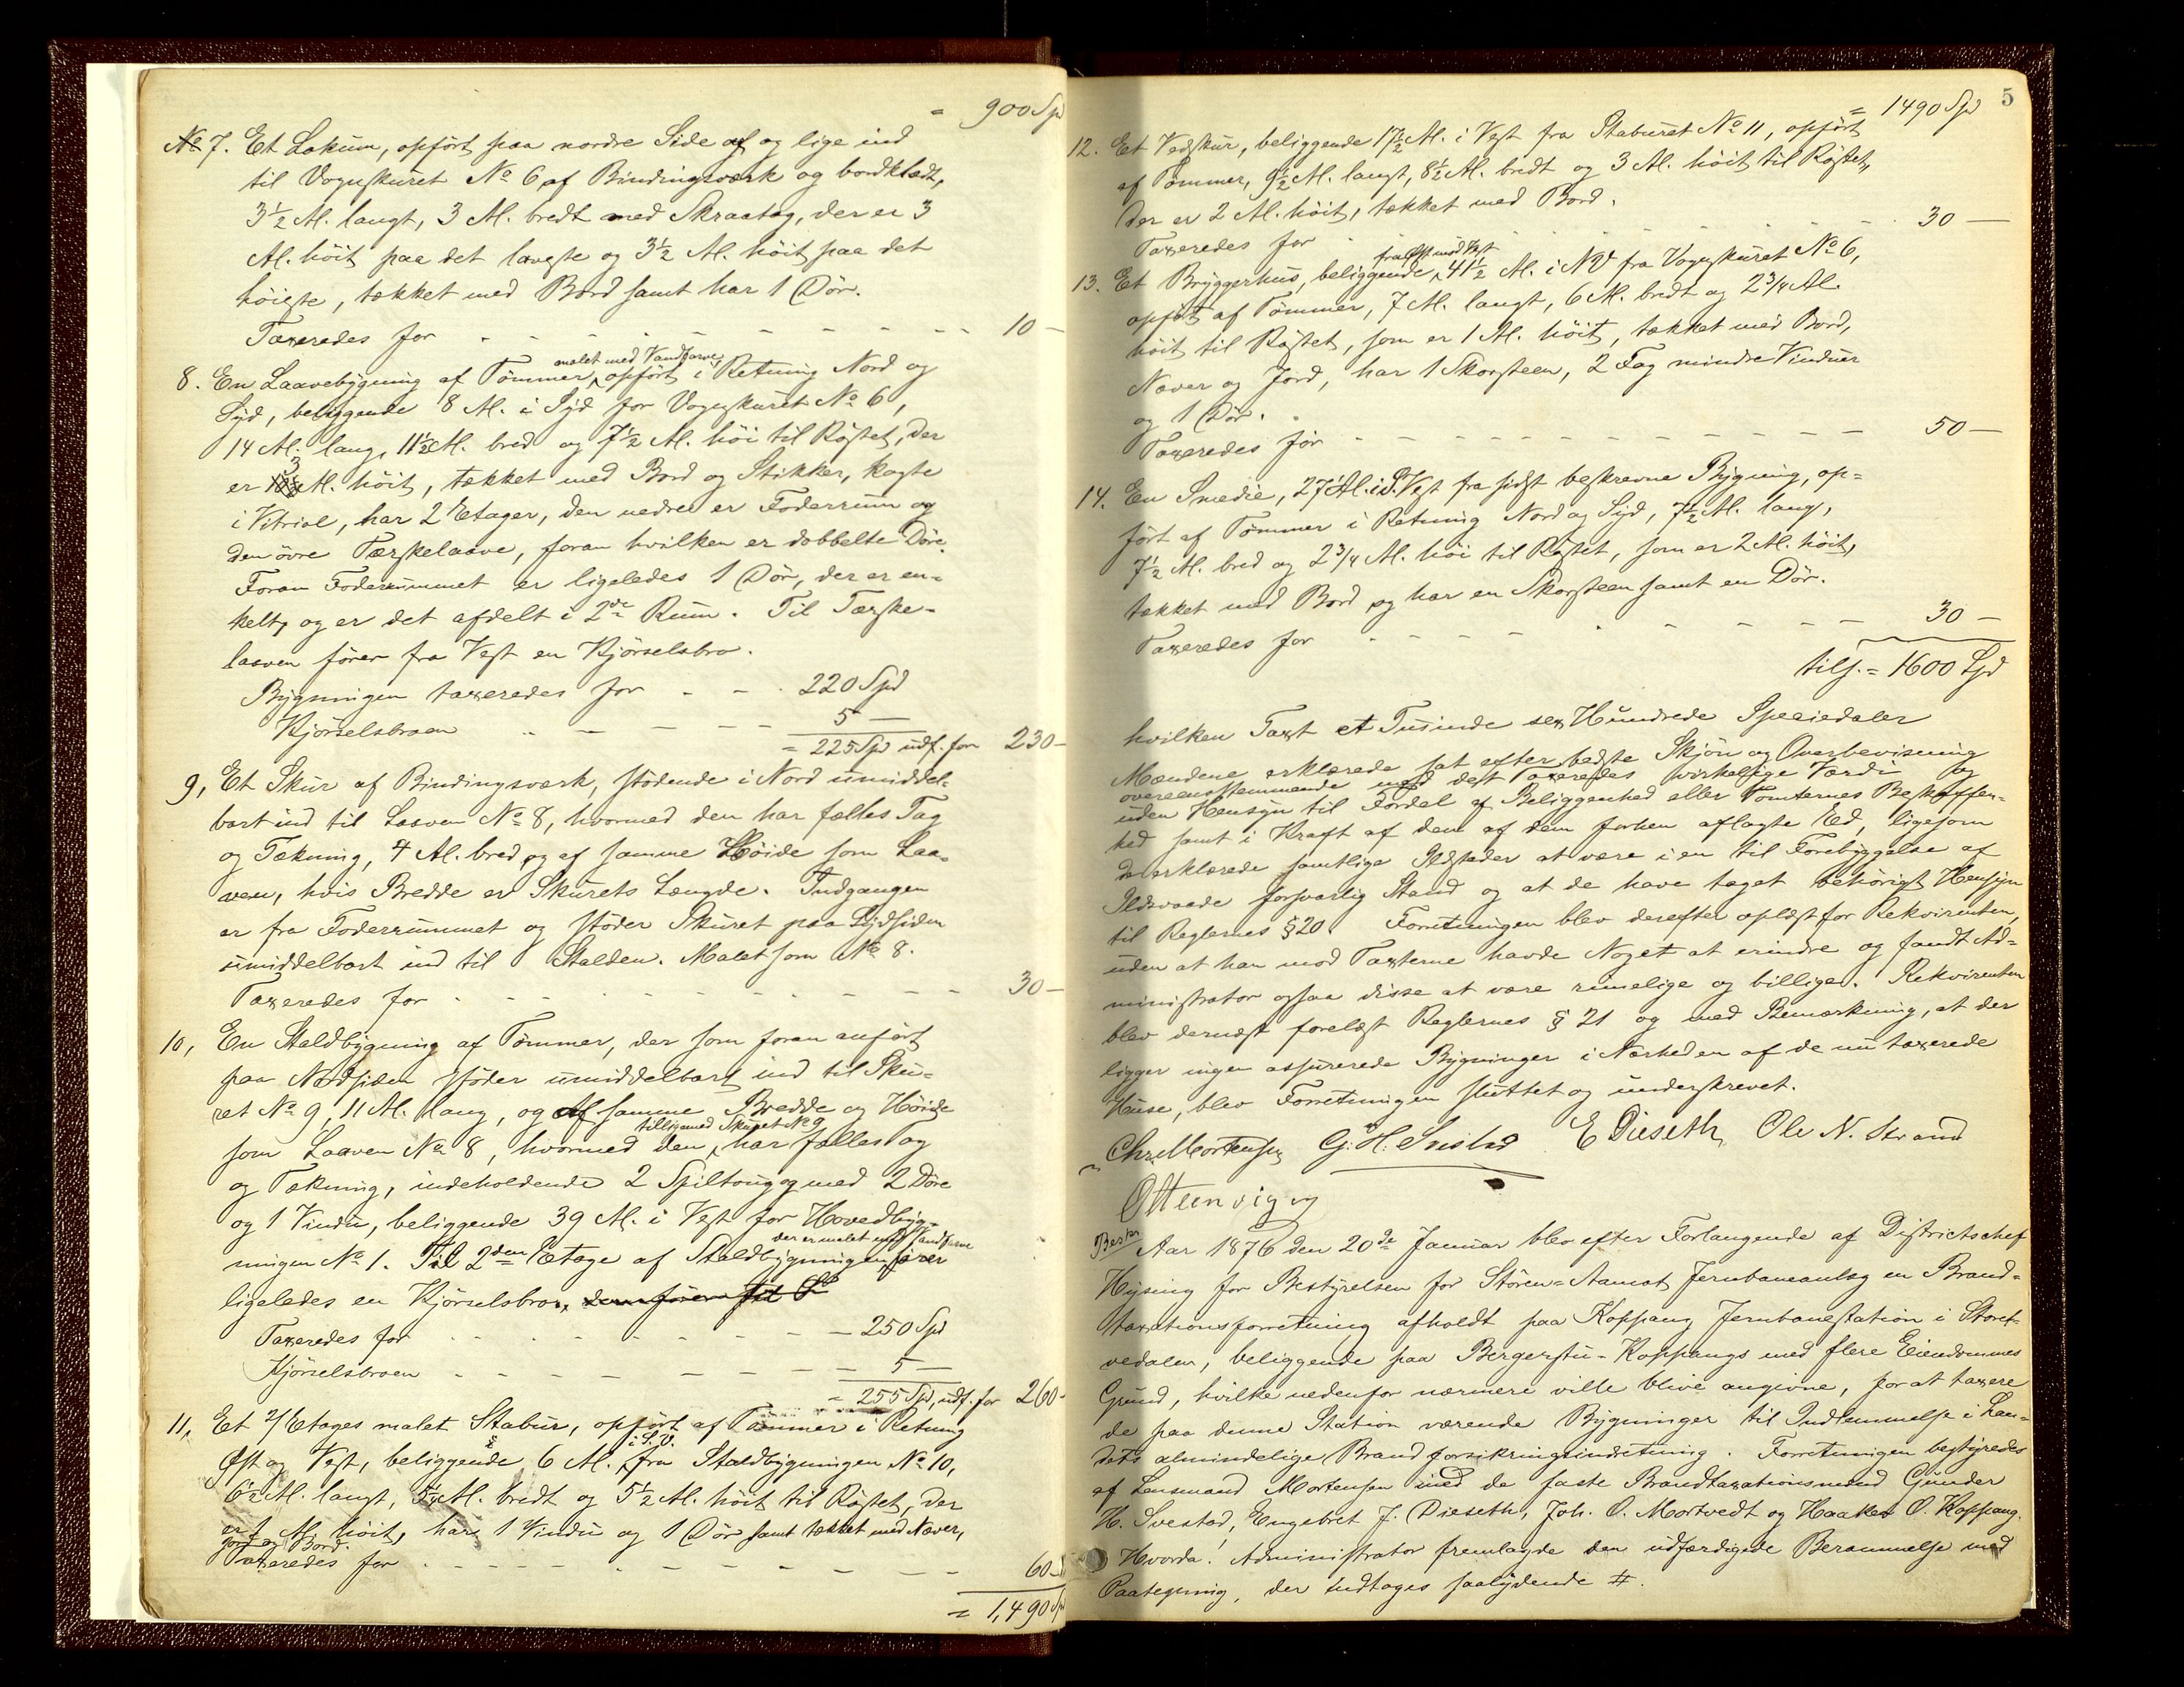 = 900 Spd
No 7. Et Lokum, opført paa nordre Side af og lige ind
til Vognskuret No 6 af Bindingsværk og bordklædt,
3½ Al. langt, 3 Al. bredt med Skraatag, der er 3
Al. höit paa det laveste og 3½ Al. höit paa det
höieste, tækket med Bord samt har 1 Dör.
Taxeredes for - - - 10 -
8. En Laavebygning af Tömmer, malet med Vandfarve, opfört i Retning Nord og
Syd, beliggende 8 Al. i Syd for Vognskuret No 6,
14 Al. lang, 11½ Al. bred og 7½ Al. höi til Röstet, der
er 3 Al. höit, tækket med Bord og Stikker, kogte
i Vitriol, har 2 Etager, den nedre er Foderrum og
den övre Tærskelaave, foran hvilken er dobbelte Döre.
Foran Foderrummet er ligeledes 1 Dör, der er en-
kelt, og er det afdelt i 2de Rum. Til Tærske-
laaven förer fra Vest en Kjörselsbro.
Bygningen taxeredes for - - 220 Spd
Kjörselsbroen - - - 5 -
= 225 Spd udf. for 230 -
9, Et Skur af Bindingsværk, stödende i Nord umiddel-
bart ind til Laaven No 8, hvormed den har fælles Tag
og Tækning, 4 Al. bred og af samme Höide som Laa-
ven, hvis Bredde er Skurets Længde. Indgangen
er fra Foderrummet og stöder Skuret paa Sydsiden
umiddelbart ind til Stalden. Malet som No 8.
Taxeredes for - - - 30 -
10, En Staldbygning af Tömmer, der som foran anfört
paa Nordsiden stöder umiddelbart ind til Sku-
ret No 9, 11 Al. lang, og af samme Bredde og Höide
som Laaven No 8, hvormed den, tilligemed Skuret No 9, har fælles Tag
og Tækning, indeholdende 2 Spiltoug og med 2 Döre
og 1 Vindu, beliggende 39 Al. i Vest for Hovedbyg-
ningen No 1. Til 2den Etage af Staldbygningen, der er malet med Vandfarve förer
ligeledes en Kjörselsbro,
Taxeredes for - - - 250 Spd
Kjörselsbroen - - - 5 -
= 255 Spd, udf. for 260 -
11, Et 2 Etages malet Stabur, opfört af Tömmer i Retning
Öst og Vest, beliggende 6 Al. i S.V. fra Staldbygningen No 10,
6½ Al. langt, Al. bredt og 5½ Al. höit til Röstet, der
er Al. höit, har 1 Vindu og 1 Dör samt tækket med Næver,
Jord og Bord.
Taxeredes for - - - 60 -
= 1,490 Spd
5
= 1490 Spd
12. Et Vedskur, beliggende 17½ Al. i Vest fra Staburet No 11, opfört
af Tömmer, 9½ Al. langt, 8½ Al. bredt og 3 Al. höit til Röstet,
der er 2 Al. höit, tækket med Bord.
Taxeredes for - - - 30 -
13. Et Bryggerhus, beliggende, fra Öst mod Vest 41½ Al. i NV fra Vognskuret No 6,
opfört af Tömmer, 7 Al. langt, 6 Al. bredt og 2¾ Al.
höit til Röstet, som er 1 Al. höit, tækket med Bord,
Næver og Jord, har 1 Skorsteen, 2 Fag mindre Vinduer
og 1 Dör.
Taxeredes for - - - 50 -
14. En Smedie, 27 Al. i S.Vest fra sidst beskrevne Bygning, op-
fört af Tömmer i Retning Nord og Syd, 7½ Al. lang,
7½ Al. bred og 2¾ Al. höi til Röstet, som er 2 Al. höit,
tækket med Bord og har en Skorsteen samt en Dör.
Taxeredes for - - - 30 -
tils. = 1600 Spd
hvilken Taxt et Tusinde sex Hundrede Speciedaler
Mændene erklærede sat efter bedste Skjön og Overbevisning
overeensstemmende med det Taxeredes virkelige Værdi og
uden Hensyn til Fordel af Beliggenhed eller Tomternes Beskaffen-
hed samt i Kraft af den af dem forhen aflagte Ed, ligesom
de erklærede samtlige Ildsteder at være i en til Forebyggelse af
Ildsvaade forsvarlig Stand og at de have taget behörigt Hensyn
til Reglernes § 20. Forretningen blev derefter oplæst for Rekvirenten,
uden at han mod Taxterne havde Noget at erindre og fandt Ad-
ministrator ogsaa disse at være rimelige og billige. Rekvirenten
blev dernæst forelæst Reglernes § 21 og med Bemærkning, at der
ligger ingen assurerede Bygninger i Nærheden af de nu taxerede
Huse, blev Forretningen sluttet og underskrevet.
Chr. Mortensen G. H. Svestad E Dieseth Ole N. Strand
Otteenvigen
Aar 1876 den 20de Januar blev efter Forlangende af Districtschef
Hysing for Bestyrelsen for Stören-Aamot Jernbaneanlæg en Brand-
taxationsforretning afholdt paa Koppang Jernbanestation i Storel-
vedalen, beliggende paa Bergerstu-Koppangs med flere Eiendommes
Grund, hvilke nedenfor nærmere ville blive angivne, for at taxere
de paa denne Station værende Bygninger til Indlemmelse i Lan-
dets almindelige Brandforsikringsindretning. Forretningen bestyredes
af Lensmand Mortensen med de faste Brandtaxationsmænd Gunder
H. Svestad, Engebret J. Dieseth, Joh. O. Mortvedt og Haaken O. Koppang.
Hvorda! Administrator fremlagde den udfærdigede Berammelse med
Paategning, der indtages saalydende #.